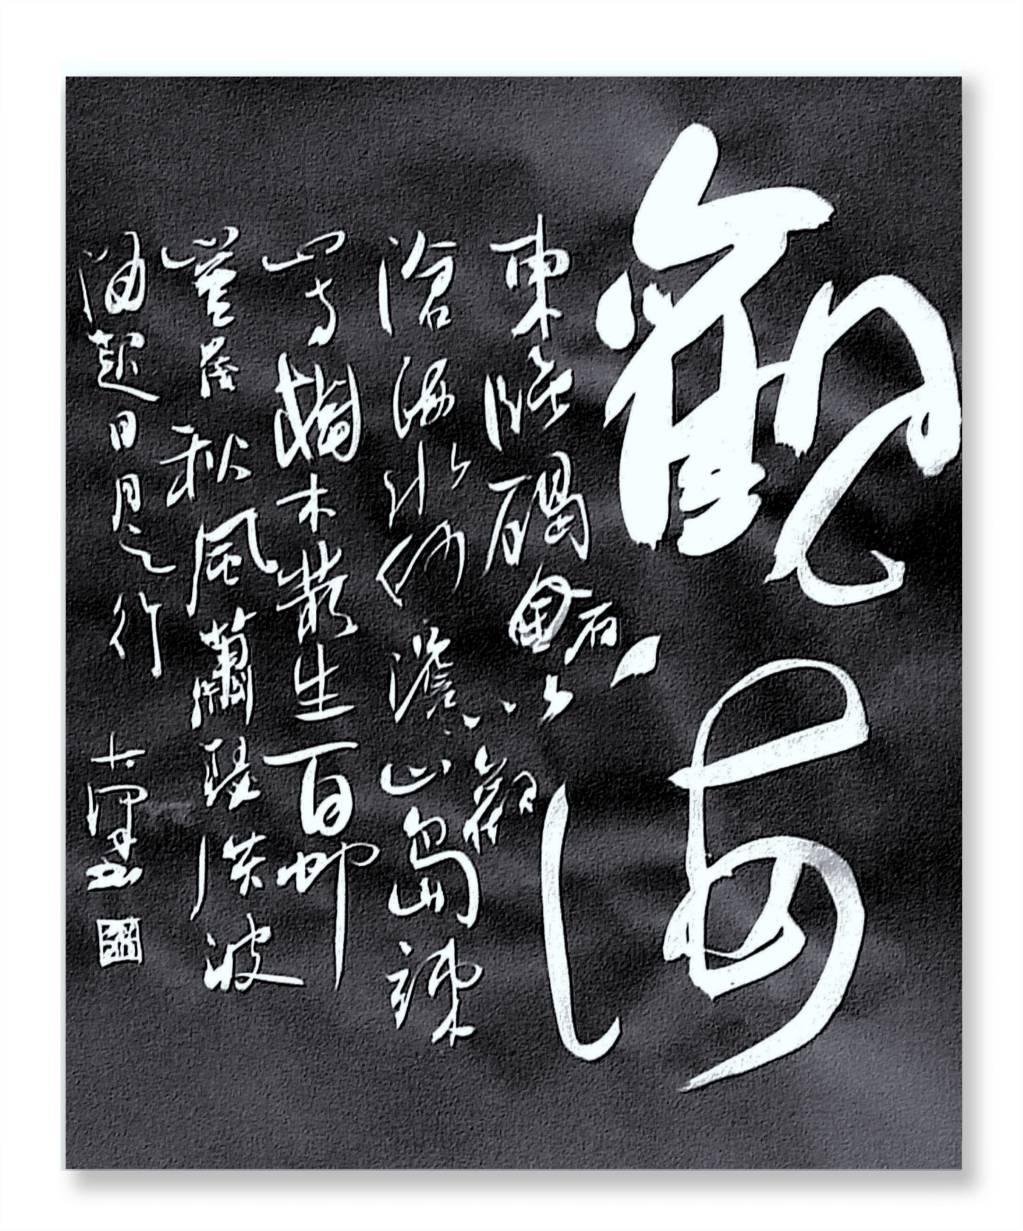 觀海
東臨碣石以觀
滄海水何澹〻山島竦
峙樹木叢生百艸
豐茂秋風蕭瑟洪波
涌起日月之行